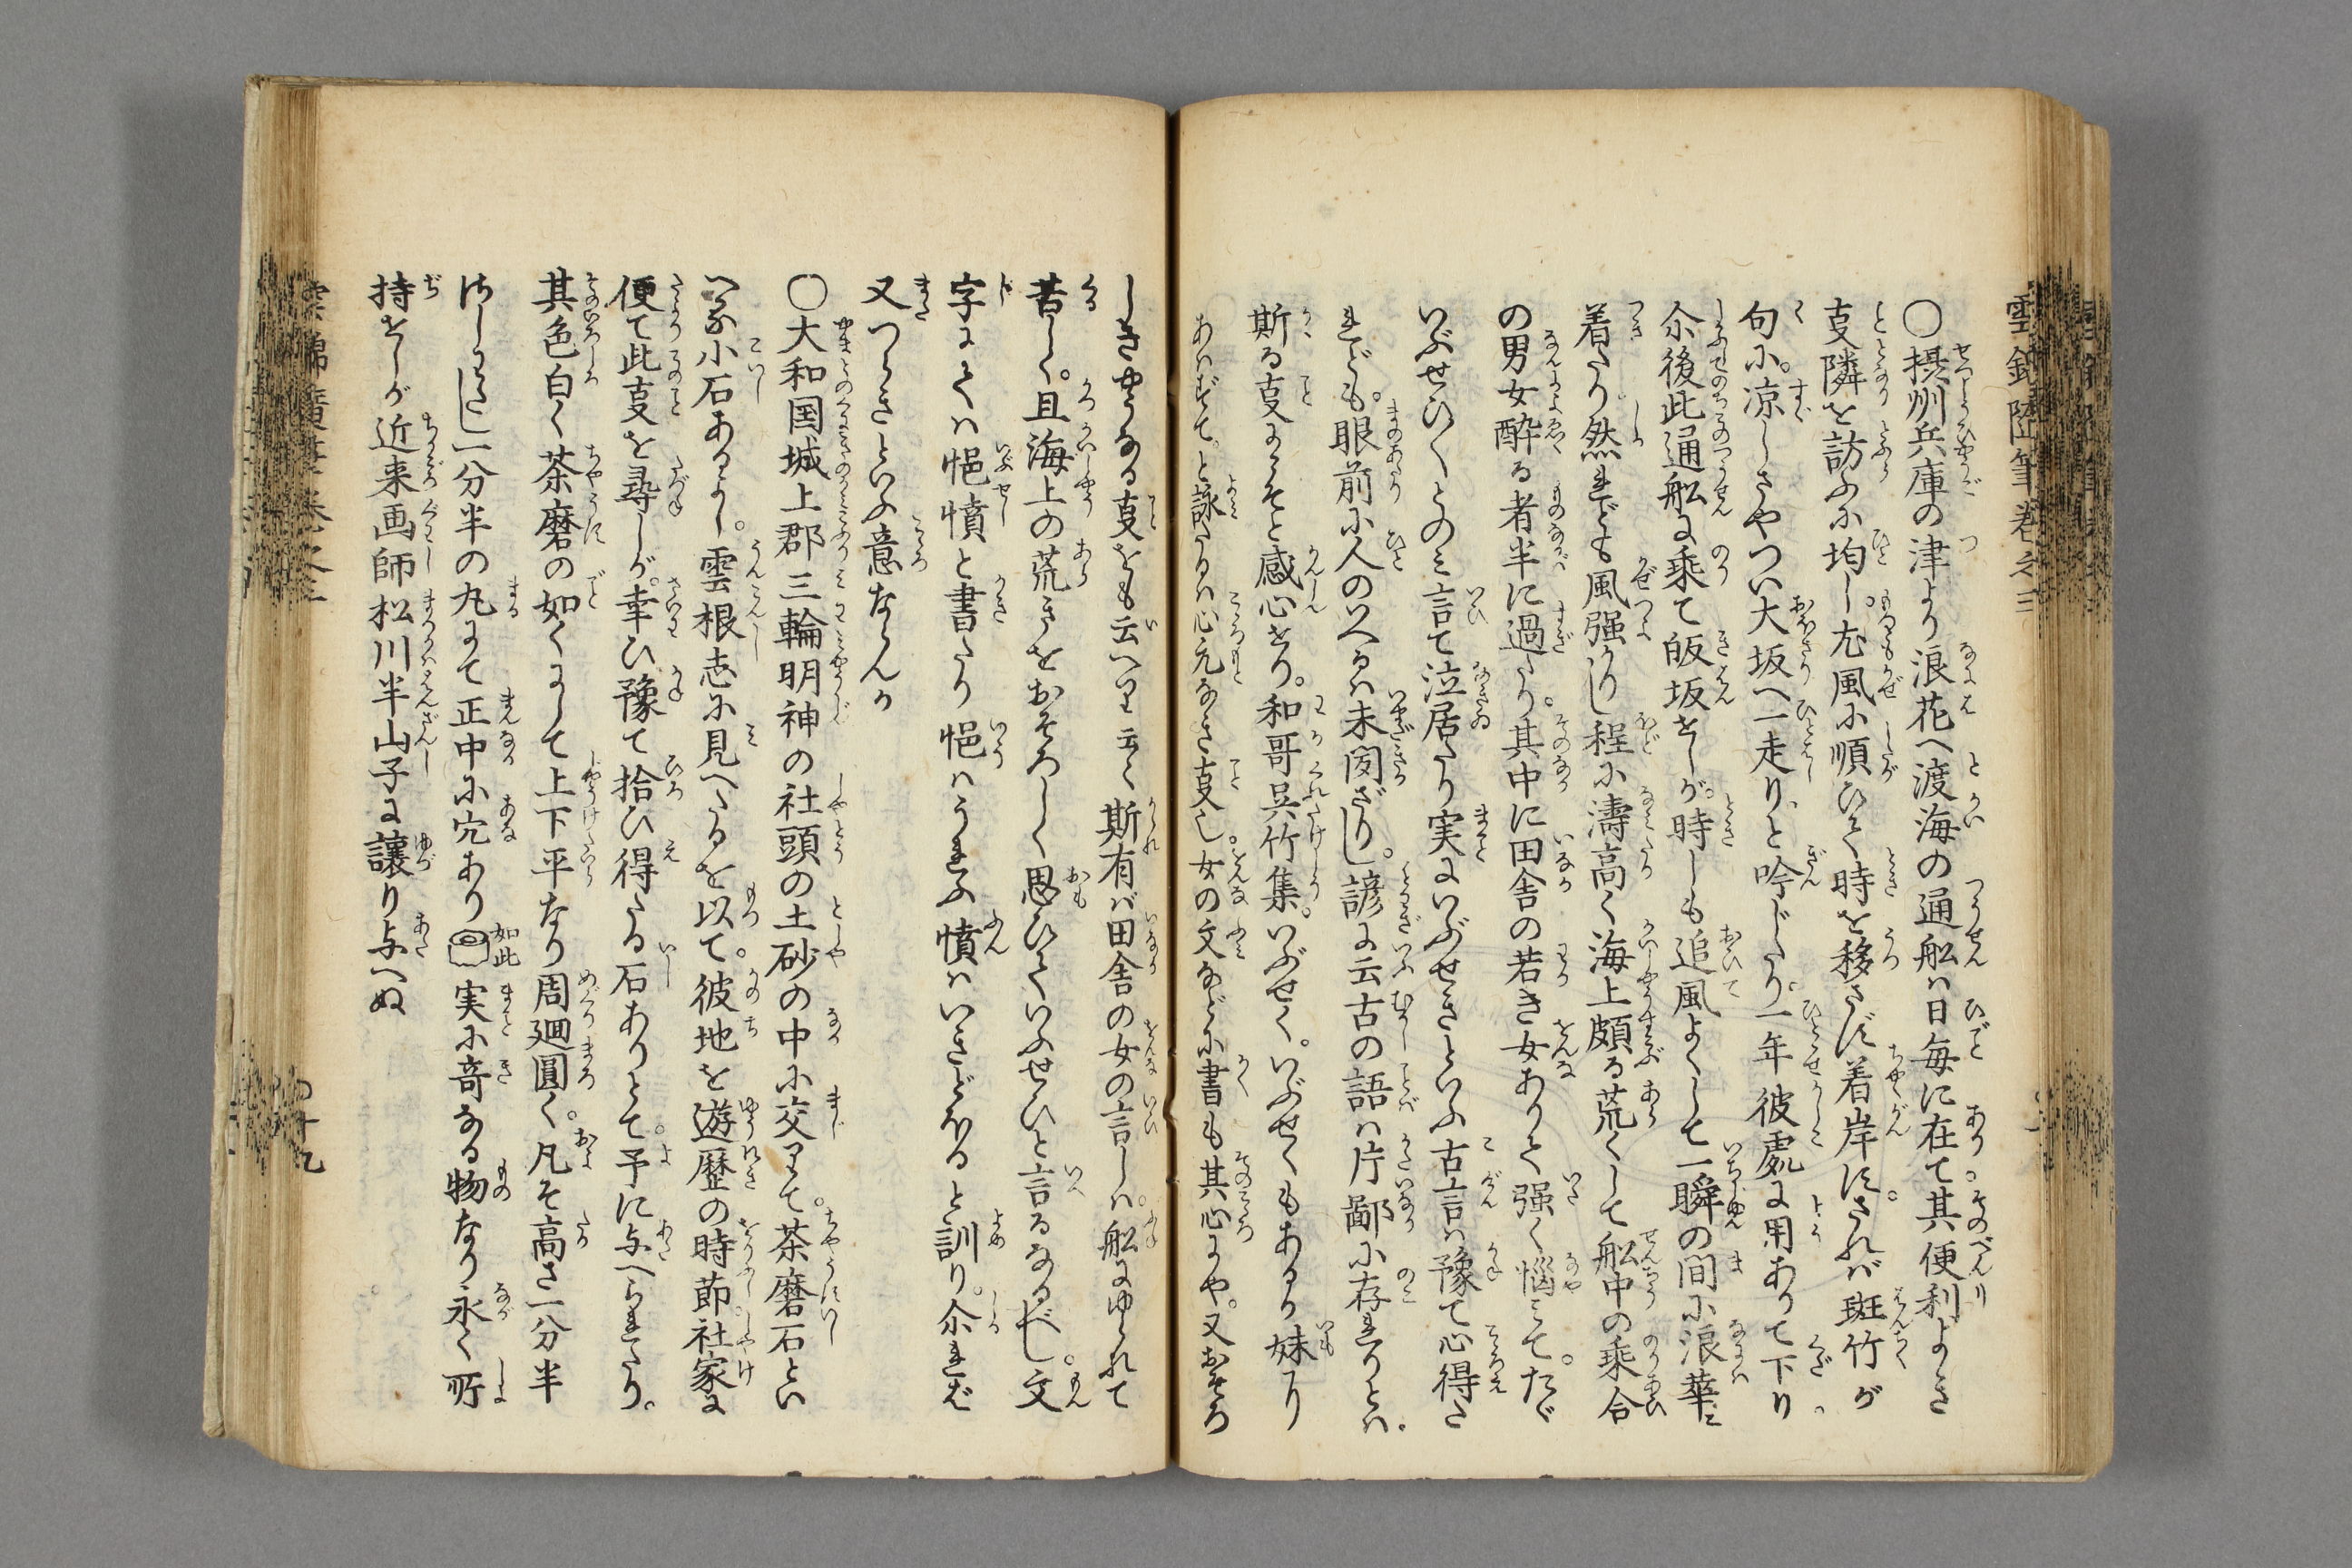 雲錦随筆巻之三
〇摂州兵庫の津より浪花へ渡海の通舩ハ日毎に在て其便利よき
叓隣を訪ふに均し。尤風に順ひて時を移さず着岸す。されバ斑竹が
句に。涼しさやつい大坂へ一走り。と吟じたり。一年彼處に用ありて下り。
尒後此通舩に乗て皈坂せしが。時しも追風よくして一瞬の間に浪華に
着たり然れども風强かりし程に濤高く海上頗る荒くして舩中の乗合
の男女酔る者半に過たり。其中に田舎の若き女ありて强く悩みて。たゞ
いぶせひ〱とのミ言て泣居たり実にいぶせきといふ古言ハ豫て心得た
れども。眼前に人のいへるハ未聞ざりし。諺に云古の語ハ片鄙に存れりとハ。
斯る叓にこそと感心せり。和哥呉竹集。いぶせく。いぶせくもあるか妹に
あハずて。と詠たるハ心元なき叓也。女の文などに書も其心にや。又おそろ
しきやうなる叓をも云へりと云〻斯有バ田舎の女の言しハ。舩にゆられて
苦しく。且海上の荒きをおそろしく思ひていふせひと言るなるべし。文
字にてハ悒憤と書たり悒ハうれふ憤ハいきどほると訓り。尒れば
又つらきといふ意ならんか
〇大和国城上郡三輪明神の社頭の土砂の中に交りて。茶磨石とい
へる小石あるよし。雲根志に見へたるを以て。彼地を遊歴の時節社家に
便て此叓を尋しが。幸ひ豫て拾ひ得たる石ありとて。予に与へられたり。
其色白く茶磨の如くにして上下平なり周廻圓く。凡そ高さ一分半
はしわたし一分半の丸にて正中に穴あり如此実に竒なる物なり永く所
持せしが近来画師松川半山子に讓り与へぬ